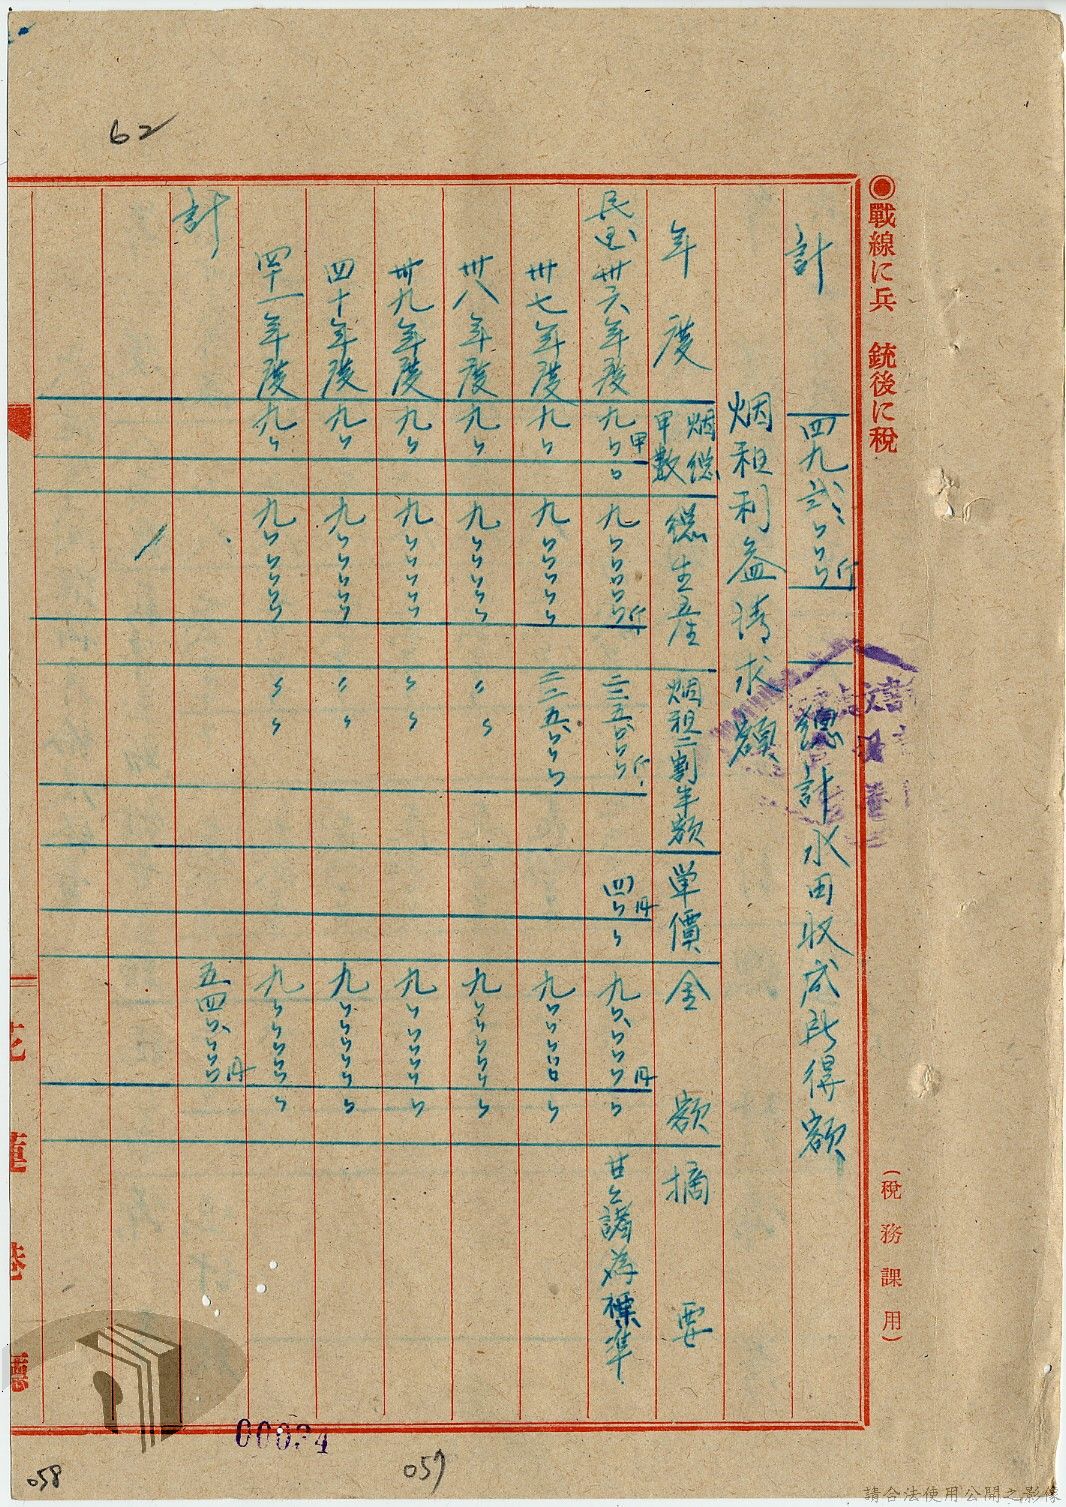 62
●戰線に兵 銃後に税
(税務課用)
計 四九弐、〇〇〇斤 總計水田收成所得額
烟租利益請求額
年度 烟総甲数 総生産 烟租二割半額 単價 金額 摘要
民国卅六年度 九〇甲〇 九〇〇〇〇〇斤 二二五、〇〇〇斤 四〇円〇 九〇、〇〇〇円〇 甘公諸為標準
卅七年度 九〇 九〇〇〇〇〇 二二五、〇〇〇 九〇〇〇〇〇〇
卅八年度 九〇 九〇〇〇〇〇 〃 〃 九〇〇〇〇〇〇
卅九年度 九〇 九〇〇〇〇〇 〃 〃 九〇〇〇〇〇〇
四十年度 九〇 九〇〇〇〇〇 〃 〃 九〇〇〇〇〇〇
四十一年度 九〇 九〇〇〇〇〇 〃 〃 九〇〇〇〇〇〇
計 五四〇、〇〇〇円
花蓮港廳
00034
057
058
請合法使用公開之影像